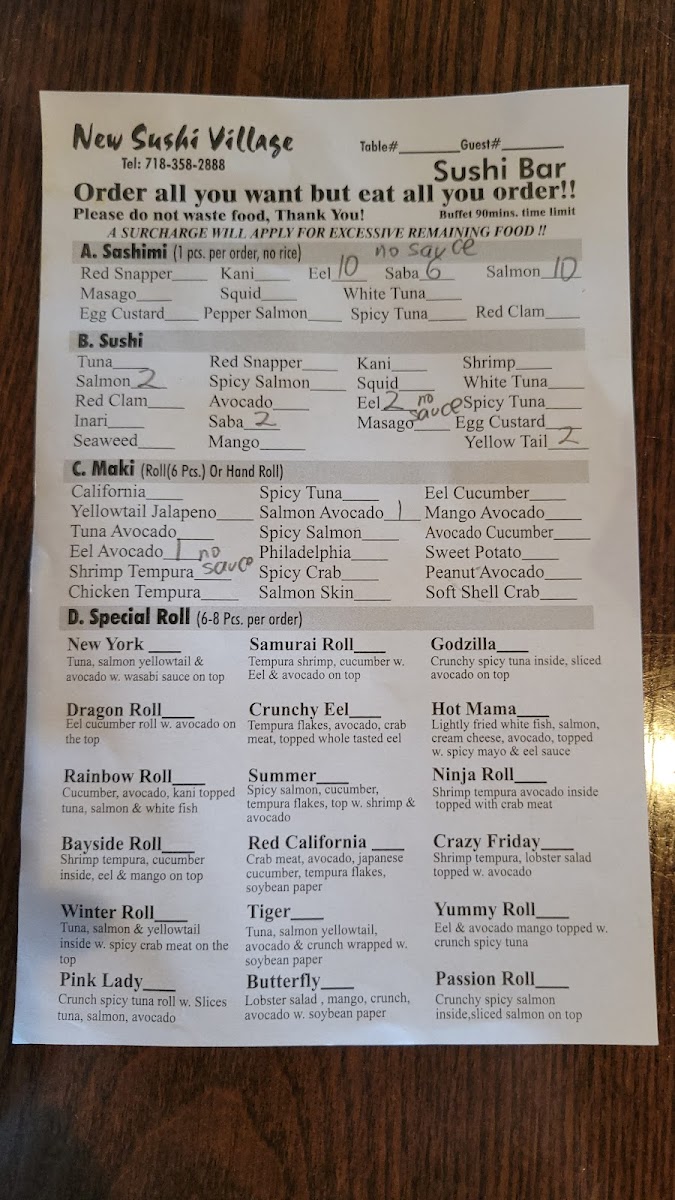 New Sushi Village
Table#________Guest#________
Tel: 718-358-2888
Sushi Bar
Order all you want but eat all you order!!
Please do not waste food, Thank You! Buffet 90mins. time limit
A SURCHARGE WILL APPLY FOR EXCESSIVE REMAINING FOOD !!
A. Sashimi (1 pcs. per order, no rice) no sauce
Red Snapper____ Kani____ Eel 10 Saba 6 Salmon 10
Masago____ Squid____ White Tuna____
Egg Custard____ Pepper Salmon____ Spicy Tuna____ Red Clam____
B. Sushi
Tuna____ Red Snapper____ Kani____ Shrimp____
Salmon 2 Spicy Salmon____ Squid____ White Tuna____
Red Clam____ Avocado____ Eel 2 no sauce Spicy Tuna____
Inari____ Saba 2 Masago____ Egg Custard____
Seaweed____ Mango____ Yellow Tail 2
C. Maki (Roll(6 Pcs.) Or Hand Roll)
California____ Spicy Tuna____ Eel Cucumber____
Yellowtail Jalapeno____ Salmon Avocado 1 Mango Avocado____
Tuna Avocado____ Spicy Salmon____ Avocado Cucumber____
Eel Avocado 1 no sauce Philadelphia____ Sweet Potato____
Shrimp Tempura____ Spicy Crab____ Peanut Avocado____
Chicken Tempura____ Salmon Skin____ Soft Shell Crab____
D. Special Roll (6-8 Pcs. per order)
New York ___ Samurai Roll___ Godzilla___
Tuna, salmon yellowtail & Tempura shrimp, cucumber w. Crunchy spicy tuna inside, sliced
avocado w. wasabi sauce on top Eel & avocado on top avocado on top
Dragon Roll___ Crunchy Eel___ Hot Mama___
Eel cucumber roll w. avocado on Tempura flakes, avocado, crab Lightly fried white fish, salmon,
the top meat, topped whole tasted eel cream cheese, avocado, topped
w. spicy mayo & eel sauce
Rainbow Roll___ Summer___ Ninja Roll___
Cucumber, avocado, kani topped Spicy salmon, cucumber, Shrimp tempura avocado inside
tuna, salmon & white fish tempura flakes, top w. shrimp & topped with crab meat
avocado
Bayside Roll___ Red California ___ Crazy Friday___
Shrimp tempura, cucumber Crab meat, avocado, japanese Shrimp tempura, lobster salad
inside, eel & mango on top cucumber, tempura flakes, topped w. avocado
soybean paper
Winter Roll___ Tiger___ Yummy Roll___
Tuna, salmon & yellowtail Tuna, salmon yellowtail, Eel & avocado mango topped w.
inside w. spicy crab meat on the avocado & crunch wrapped w. crunch spicy tuna
top soybean paper
Pink Lady___ Butterfly___ Passion Roll___
Crunch spicy tuna roll w. Slices Lobster salad , mango, crunch, Crunchy spicy salmon
tuna, salmon, avocado avocado w. soybean paper inside,sliced salmon on top